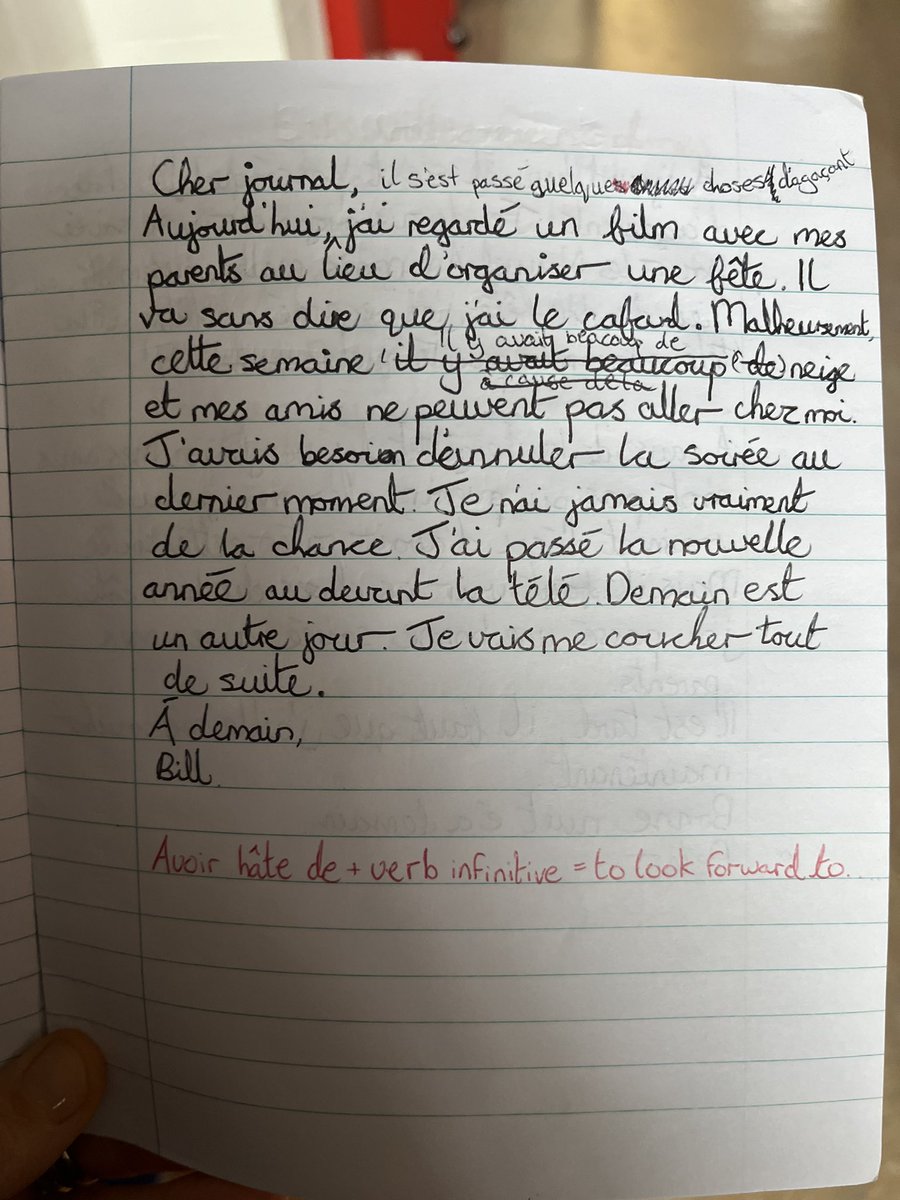 Cher journal, il s'est passé quelque choses d'agaçant
Aujourd'hui, j'ai regardé un film avec mes
parents au lieu d'organiser une fête. Il
va sans dire que j'ai le cafard. Malheursement,
il y avait beacoup de
cette semaine il y avait beaucoup (de) neige
a cause de la
et mes amis ne peuvent pas aller chez moi.
J'avais besoin d'annuler la soirée au
dernier moment. Je n'ai jamais vraiment
de la chance. J'ai passé la nouvelle
année au devant la télé. Demain est
un autre jour. Je vais me coucher tout
de suite.
À demain,
Bill.
Avoir hâte de + verb infinitive = to look forward to.